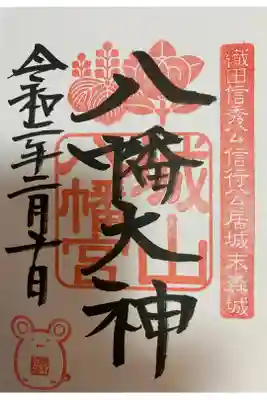 織田信秀公信行公居城末森城
八幡大神
城山
八幡宮
令和二年二月十日